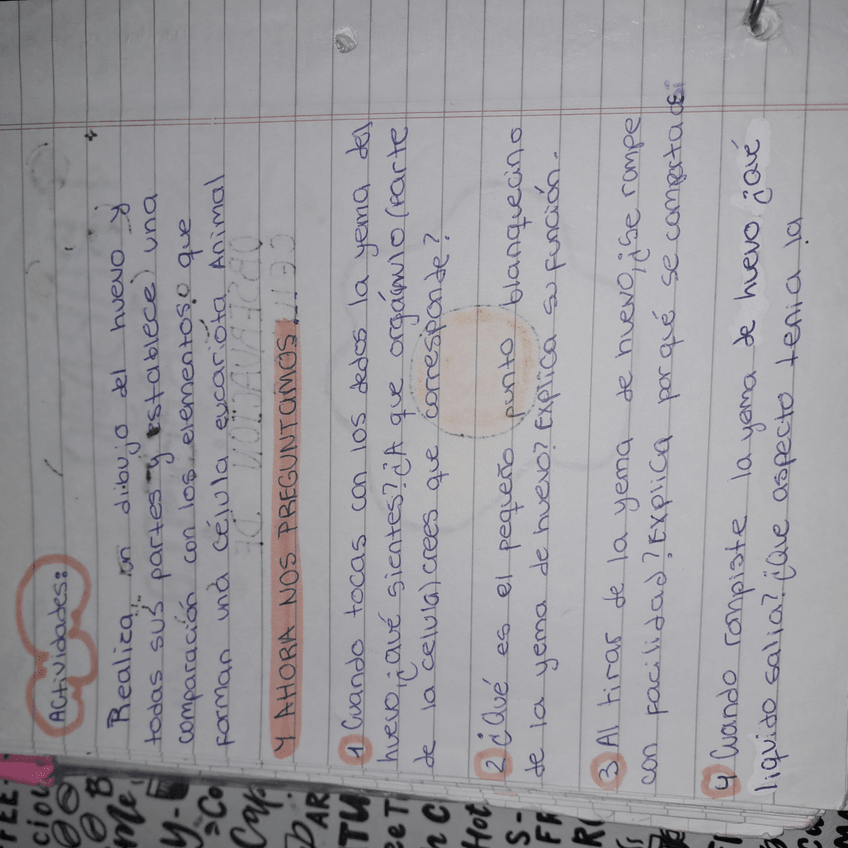 Actividades:
Realiza un dibujo del huevo y
todas sus partes y establece una
comparación con los elementos que
forman una célula eucariota Animal
Y AHORA NOS PREGUNTAMOS...
1 Cuando tocas con los dedos la yema del
huevo, ¿qué sientes? ¿A que orgánulo (Parte
de la celula) crees que corresponde?
2 ¿Qué es el pequeño punto blanquecino
de la yema de huevo? Explica su función.
3 Al tirar de la yema de huevo, ¿Se rompe
con facilidad? Explica porqué se comporta así
4 Cuando rompiste la yema de huevo ¿qué
liquido salia? ¿Que aspecto tenia la